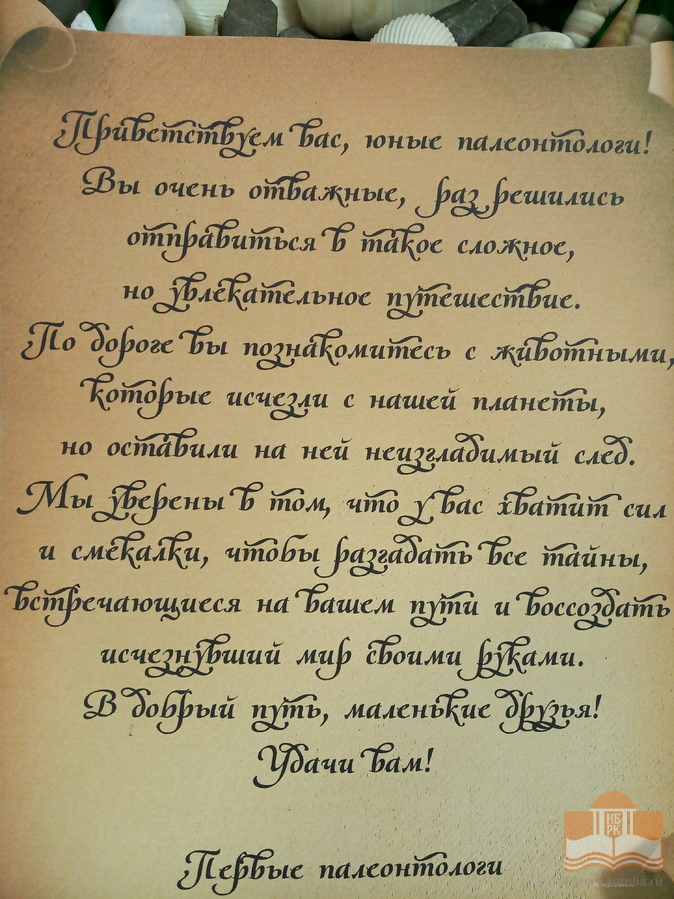 Приветствуем вас, юные палеонтологи!
Вы очень отважные, раз решились
отправиться в такое сложное,
но увлекательное путешествие.
По дороге вы познакомитесь с животными,
которые исчезли с нашей планеты,
но оставили на ней неизгладимый след.
Мы уверены в том, что у вас хватит сил
и смекалки, чтобы разгадать все тайны,
встречающиеся на вашем пути и воссоздать
исчезнувший мир своими руками.
В добрый путь, маленькие друзья!
Удачи вам!
Первые палеонтологи
НБ
РК